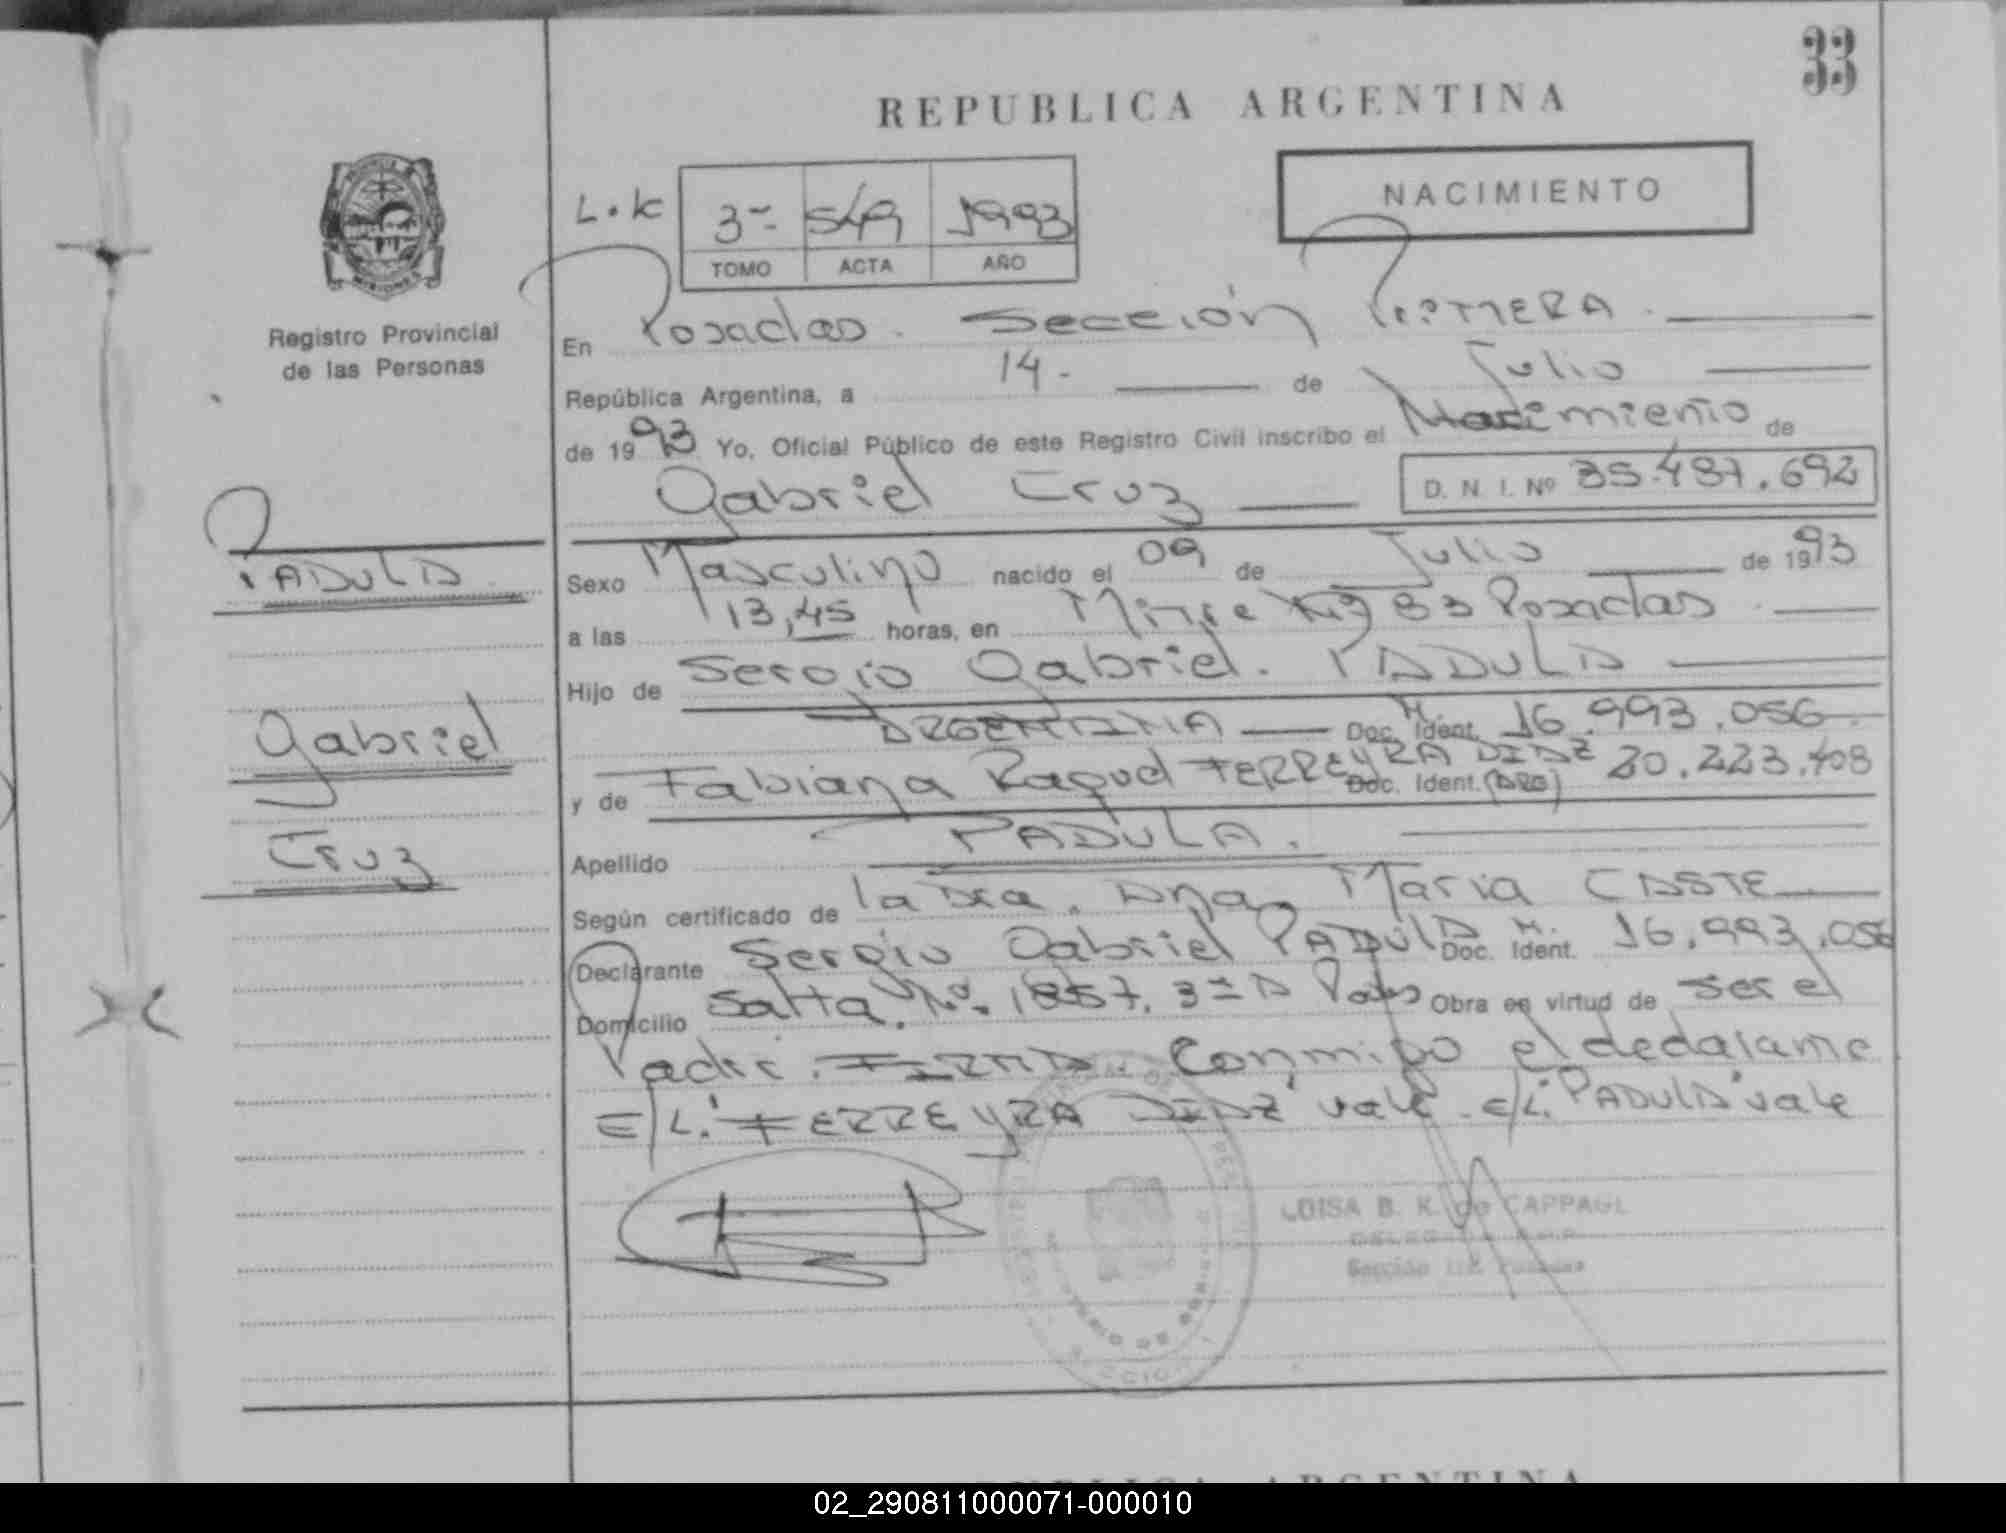 33
REPUBLICA ARGENTINA
NACIMIENTO
L.K 3º 549 1993
TOMO ACTA AÑO
Registro Provincial
de las Personas
En Posadas. Sección PRIMERA.
República Argentina, a 14 - de Julio
de 1993 Yo, Oficial Público de este Registro Civil inscribo el Nacimiento de
Gabriel Cruz D. N. I. Nº 35.487.692
PADULA
Gabriel
Cruz
Sexo Masculino nacido el 09 de Julio de 1993
a las 13,45 horas, en 83 Posadas
Hijo de Sergio Gabriel. PADULA
ARGENTINA Doc. Ident. M. 16.993.056
y de Fabiana Raquel FERREYRA DIAZ Doc. Ident. (ARG) 20.223.408
Apellido PADULA.
Según certificado de la Dra. Dña. Maria CASTE
Declarante Sergio Gabriel PADULA Doc. Ident. M. 16.993.056
Domicilio Salta. Nº. 1857. 3º D Pdas Obra en virtud de ser el
Padre. FIRMA Conmigo el declarante
E/L. "FERREYRA DIAZ" vale. E/L. "PADULA" vale
LUISA B. K. de CAPPAGL
Sección
REPUBLICA ARGENTINA
02_290811000071-000010